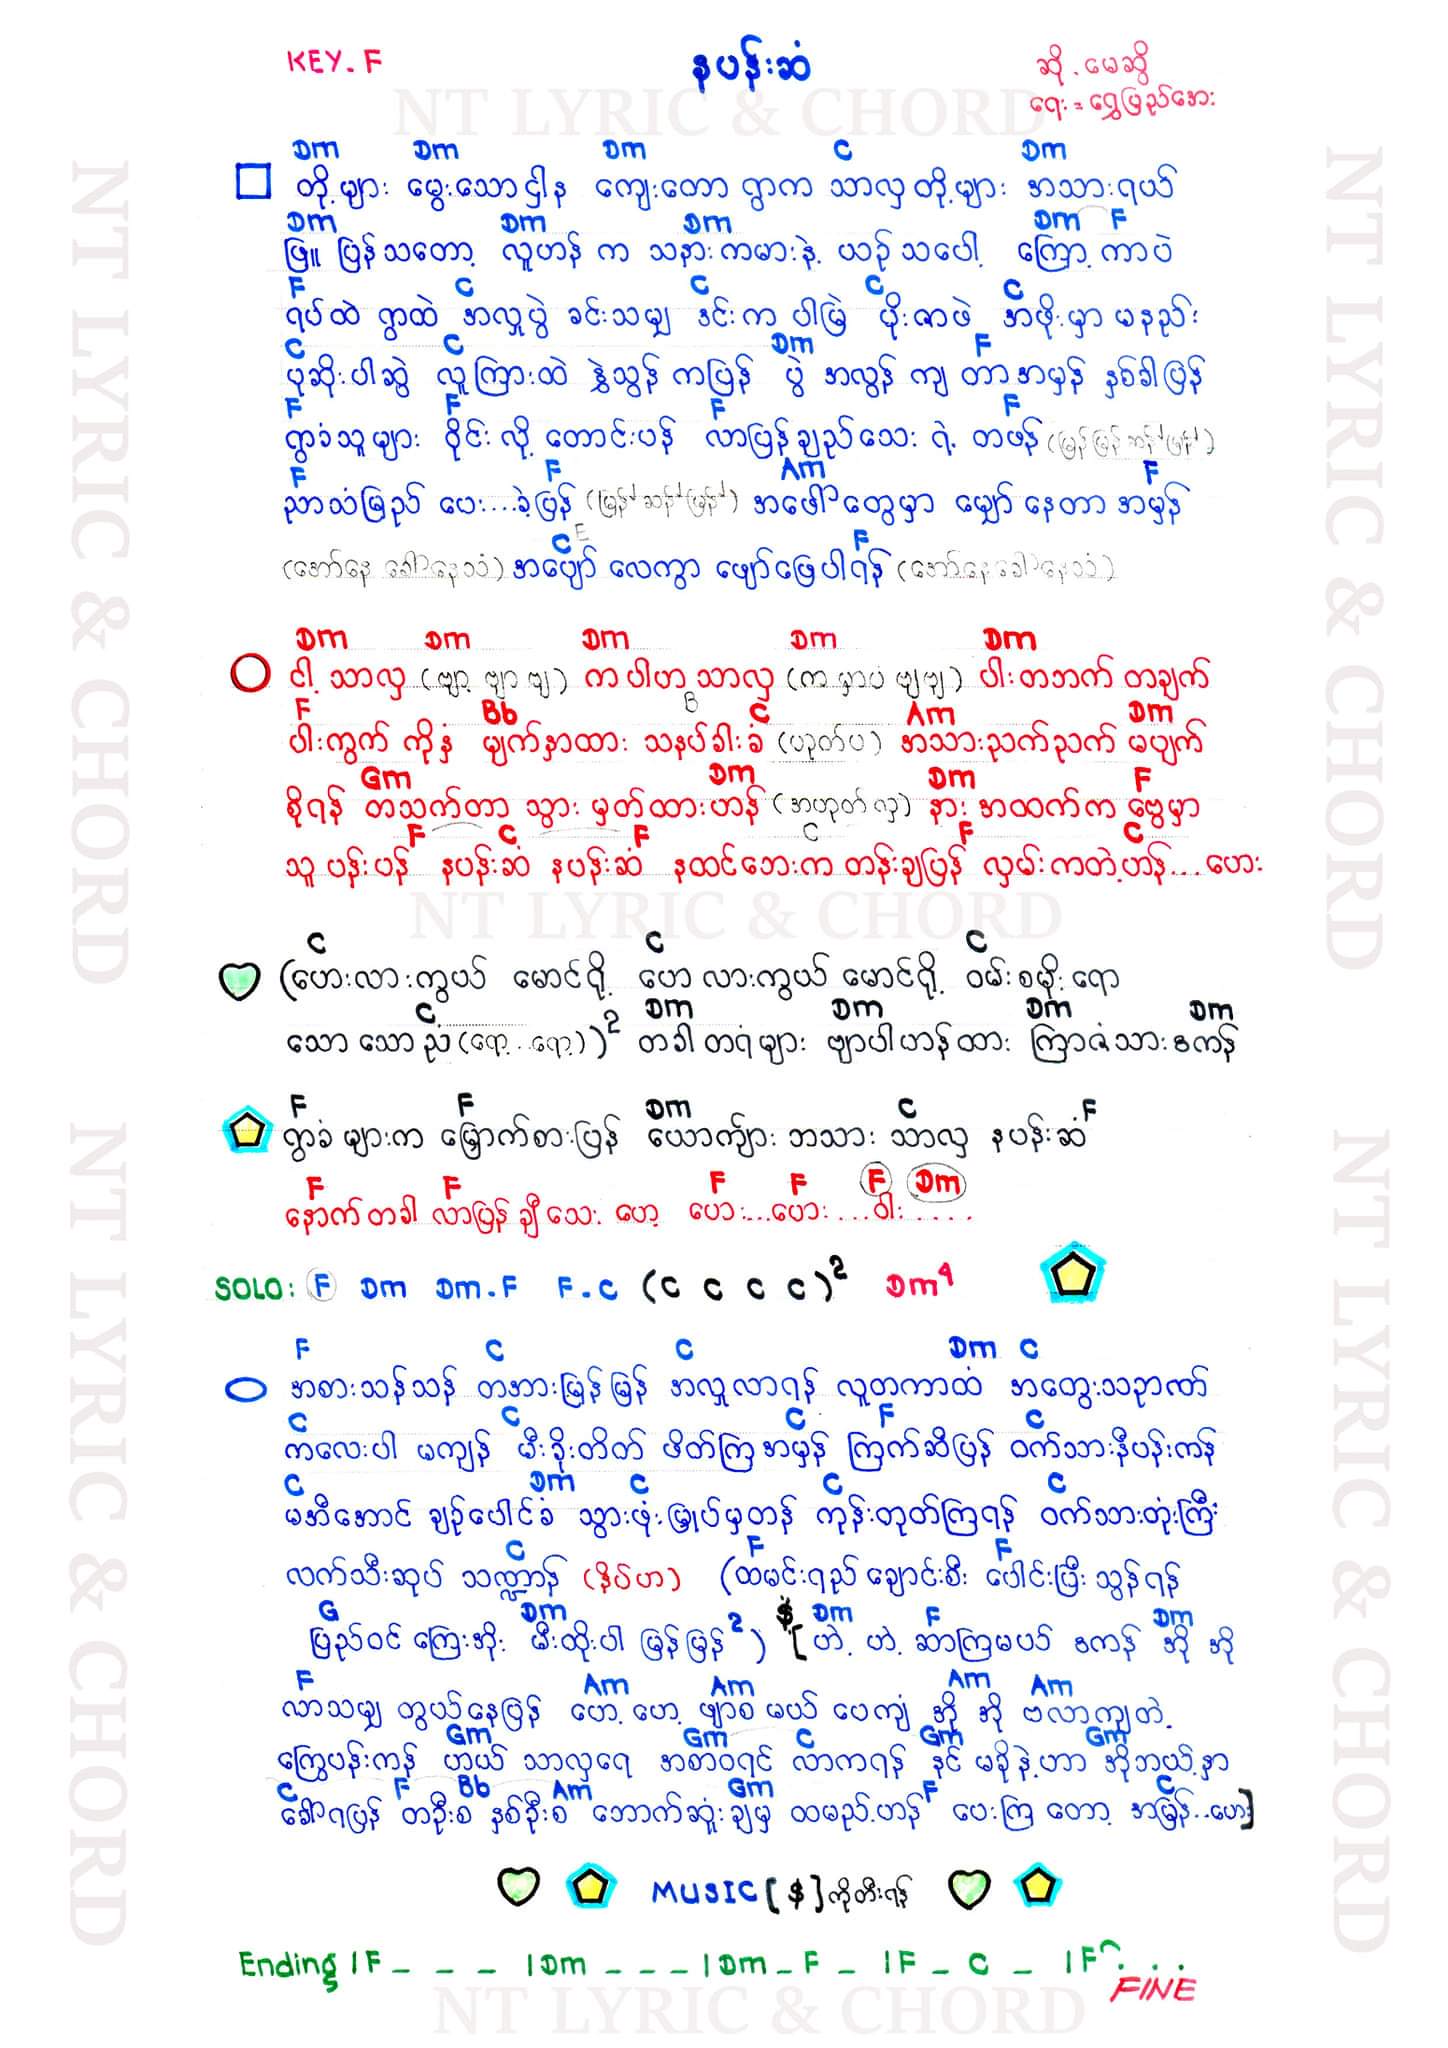 KEY. F
နပန်းဆံ
ဆို . မေဆွိ
ရေး = ရွှေပြည်အေး
NT LYRIC & CHORD
Dm Dm Dm C Dm
တို့များ မွေးသောဌါန ကျေးတောရွာက သာလှတို့များ အသားရယ်
Dm Dm Dm Dm F
ဖြူ။ ပြန်သတော့ လူဟန် က သနားကမားနဲ့ ယဉ် သပေါ့ ကြော့ကာပဲ
F C C C C
ရပ်ထဲ ရွာထဲ အလှူပွဲ ခင်းသမျှ ဒင်းက ပါမြဲ ပိုးဇာဖဲ အဖိုးမှာ မနည်း
C C Dm F
ပုဆိုးပါဆွဲ လူကြားထဲ နွဲ့သွန် ကပြန် ပွဲ အလွန် ကျ တာအမှန် နှစ်ခါပြန်
F F F F
ရွာခံသူများ ဝိုင်းလို့ တောင်းပန် လာပြန်ချည်သေး ရဲ့ တဖန်
F F Am F
ညာသံမြည် ပေး....ခဲ့ပြန် အဖေါ်တွေမှာ မျှော် နေတာ အမှန်
C E F
(အော်နေ ခေါ်နေသံ) အပျော် လေကွာ ဖျော်ဖြေပါရန် (အော်နေခေါ်နေသံ)
Dm Dm Dm Dm Dm
ငါ့ သာလှ (ဗျာ့ ဗျာ ဗျ) က ပါဟ သာလှ (က မှာပဲ ဗျဗျ) ပါးတဘက် တချက်
B
F Bb C Am Dm
ပါးကွက် ကိုနှံ မျက်နှာထား သနပ်ခါးခံ အသားညက်ညက် မပျက်
Gm Dm Dm F
စိုရန် တသက်တာ သွား မှတ်ထားဟန် (အဟုတ်လှ) နား အထက်က ဗွေမှာ
F C F C F C
သူ ပန်းပန် နပန်းဆံ နပန်းဆံ နထင်ဘေးက တန်းချပြန် လှမ်းကတဲ့ဟန်...ဟေး
NT LYRIC & CHORD
C C C
(ဟေးလားကွယ် မောင်ရို့ ဟေလားကွယ် မောင်ရို့ ဝမ်းစမိုးရော
C Dm Dm Dm Dm
သော သော ညံ (ရော့...ရော့))2 တခါတရံများ ဗျာပါဟန်ထား ကြာဇံသားဒကန်
F F Dm C F
ရွာခံများက မြှောက်စားပြန် ယောက်ျား ဘသား သာလှ နပန်းဆံ
F F F F F Dm
နောက်တခါ လာပြန်ချီသေး ဟေ့ ဟေး...ဟေး....ဝါး....
SOLO: F Dm Dm.F F.C (C C C C)2 Dm4
F C C Dm C
အစားသန်သန် တအားမြန်မြန် အလှူလာရန် လူတကာထံ အတွေးသဉာဏ်
C C C F C
ကလေးပါ မကျန် မီးခိုးတိတ် ဖိတ်ကြအမှန် ကြက်ဆီပြန် ဝက်သားနီပန်းကန်
C Dm C C C
မအီအောင် ချဉ်ပေါင်ခံ သွားဖုံးမြှုပ်မှတန် ကုန်းတုတ်ကြရန် ဝက်သားတုံးကြီး
C F F
လက်သီးဆုပ် သဏ္ဍာန် (နိပ်ဟ) (ထမင်းရည်ချောင်းစီး ပေါင်းပြီးသွန်ရန်
G Dm $ Dm F Dm
ပြည်ဝင်ကြေးအိုး မီးထိုးပါ မြန်မြန်2) [ဟဲ့ ဟဲ့ ဆာကြမယ် ဒကန် အို အို
F Am Am Am Am
လာသမျှ တွယ်နေပြန် ဟေ့ ဟေ့ ဖျာစ မယ် ပေကျံ အို အို ဗလာကျတဲ့
Gm Gm C Gm Gm
ကြွေပန်းကန် ဟယ် သာလှရေ အစာဝရင် လာကရန် နင် မခိုနဲ့ဟာ အိုဘယ့်နှာ
C F Bb Am Gm F C
ခေါ်ရပြန် တဦးစ နှစ်ဦးစ ဘောက်ဆူးချမှ ထမည့်ဟန် ပေးကြ တော့ အမြန်..ဟေး]
MUSIC [$] ကိုတီးရန်
Ending | F _ _ _ | Dm _ _ _ | Dm _ F _ | F _ C _ | F . . .
FINE
NT LYRIC & CHORD
NT LYRIC & CHORD
NT LYRIC & CHORD
NT LYRIC & CHORD
NT LYRIC & CHORD